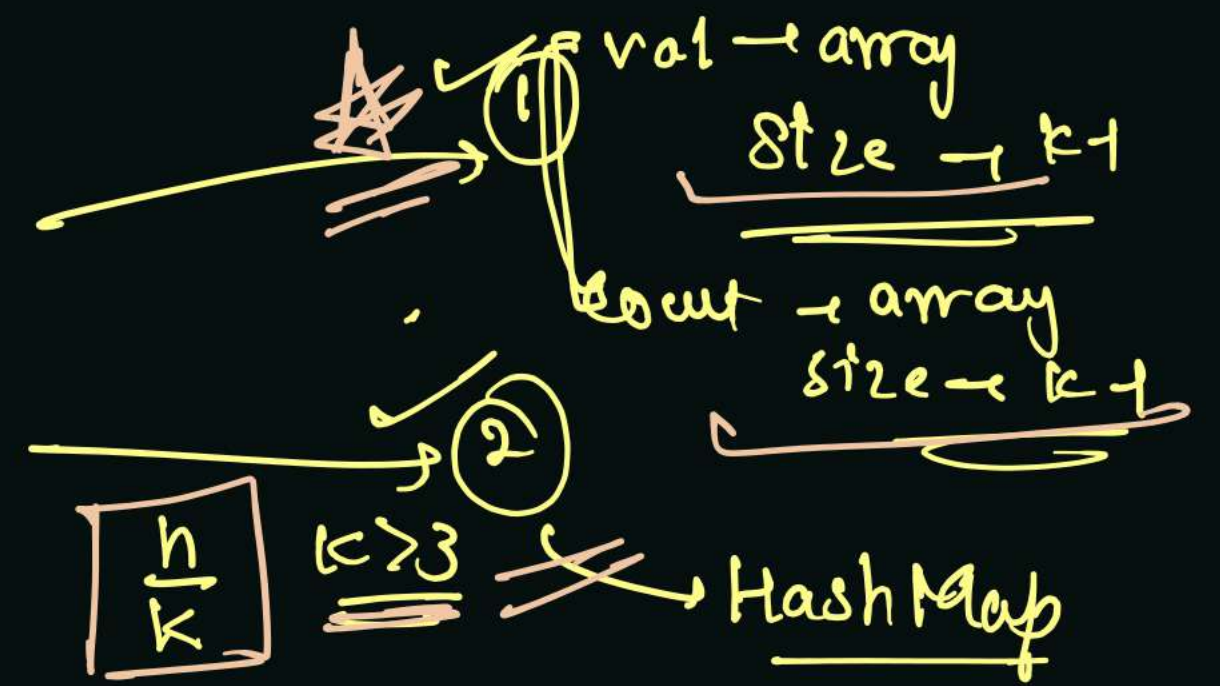 1 val → array
size → k-1
count → array
size → k-1
2
n/k k>3
HashMap